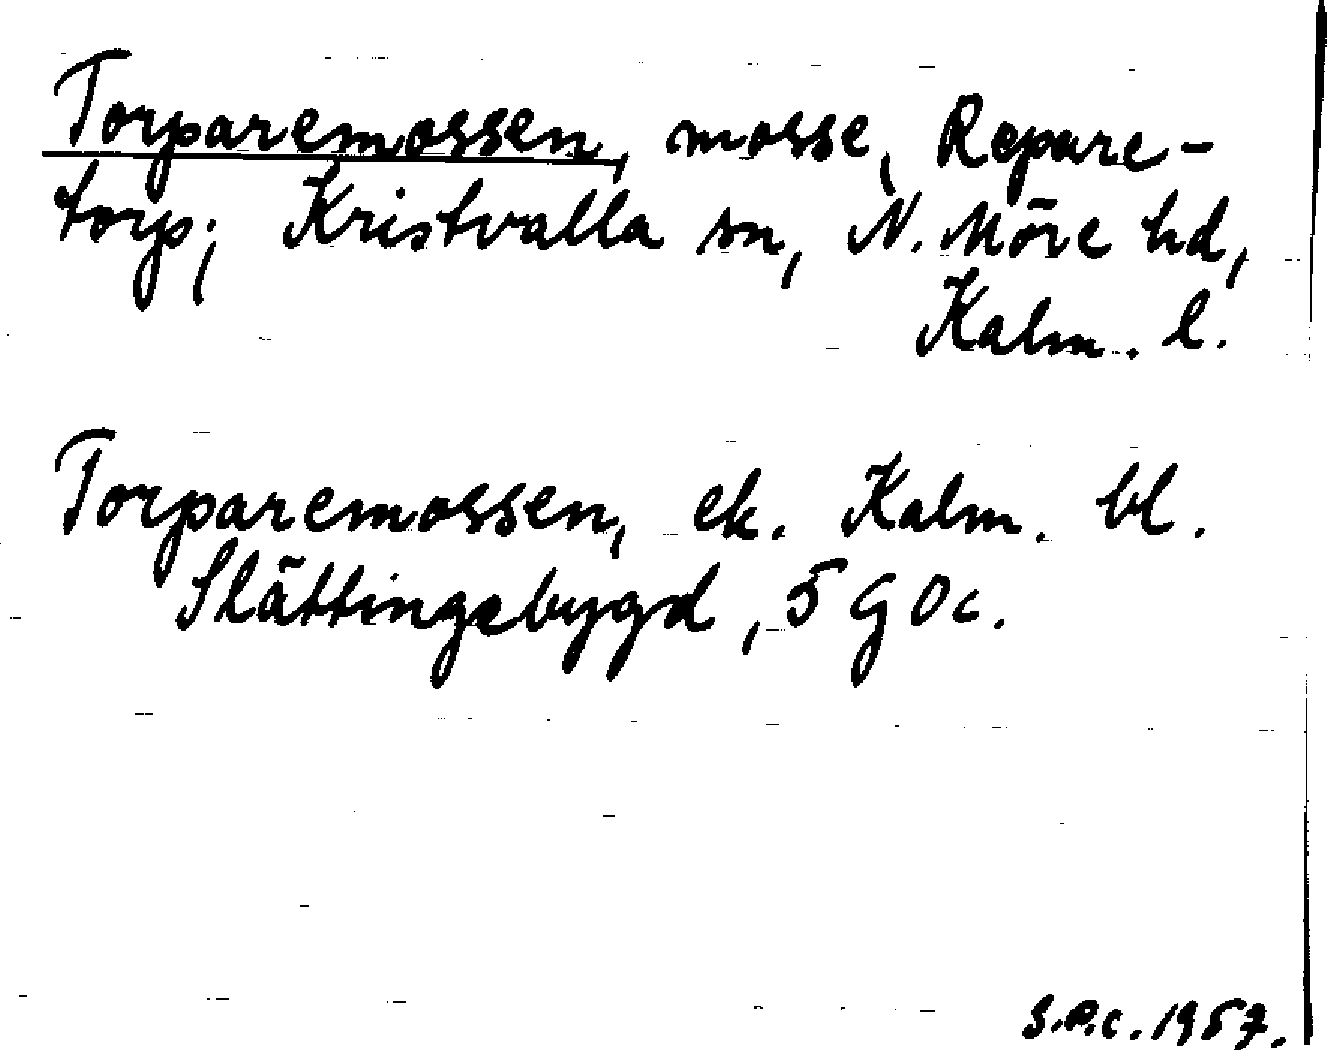 Torparemossen, mosse, Repare-
torp; Kristvalla sn, N. Möre hd,
Kalm. l.
Torparemossen, ek. Kalm. bl.
Slättingebygd, 5 G 0 c.
S.P.C. 1957.